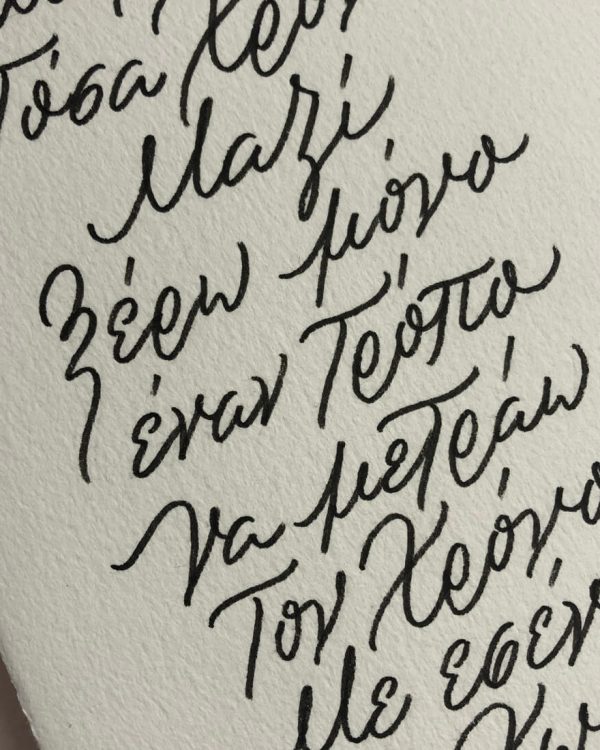 Τόσα Χρό
Μαζί
Ξέρω μόνο
έναν Τρόπο
να μετράω
Τον Χρόνο
Με εσέν